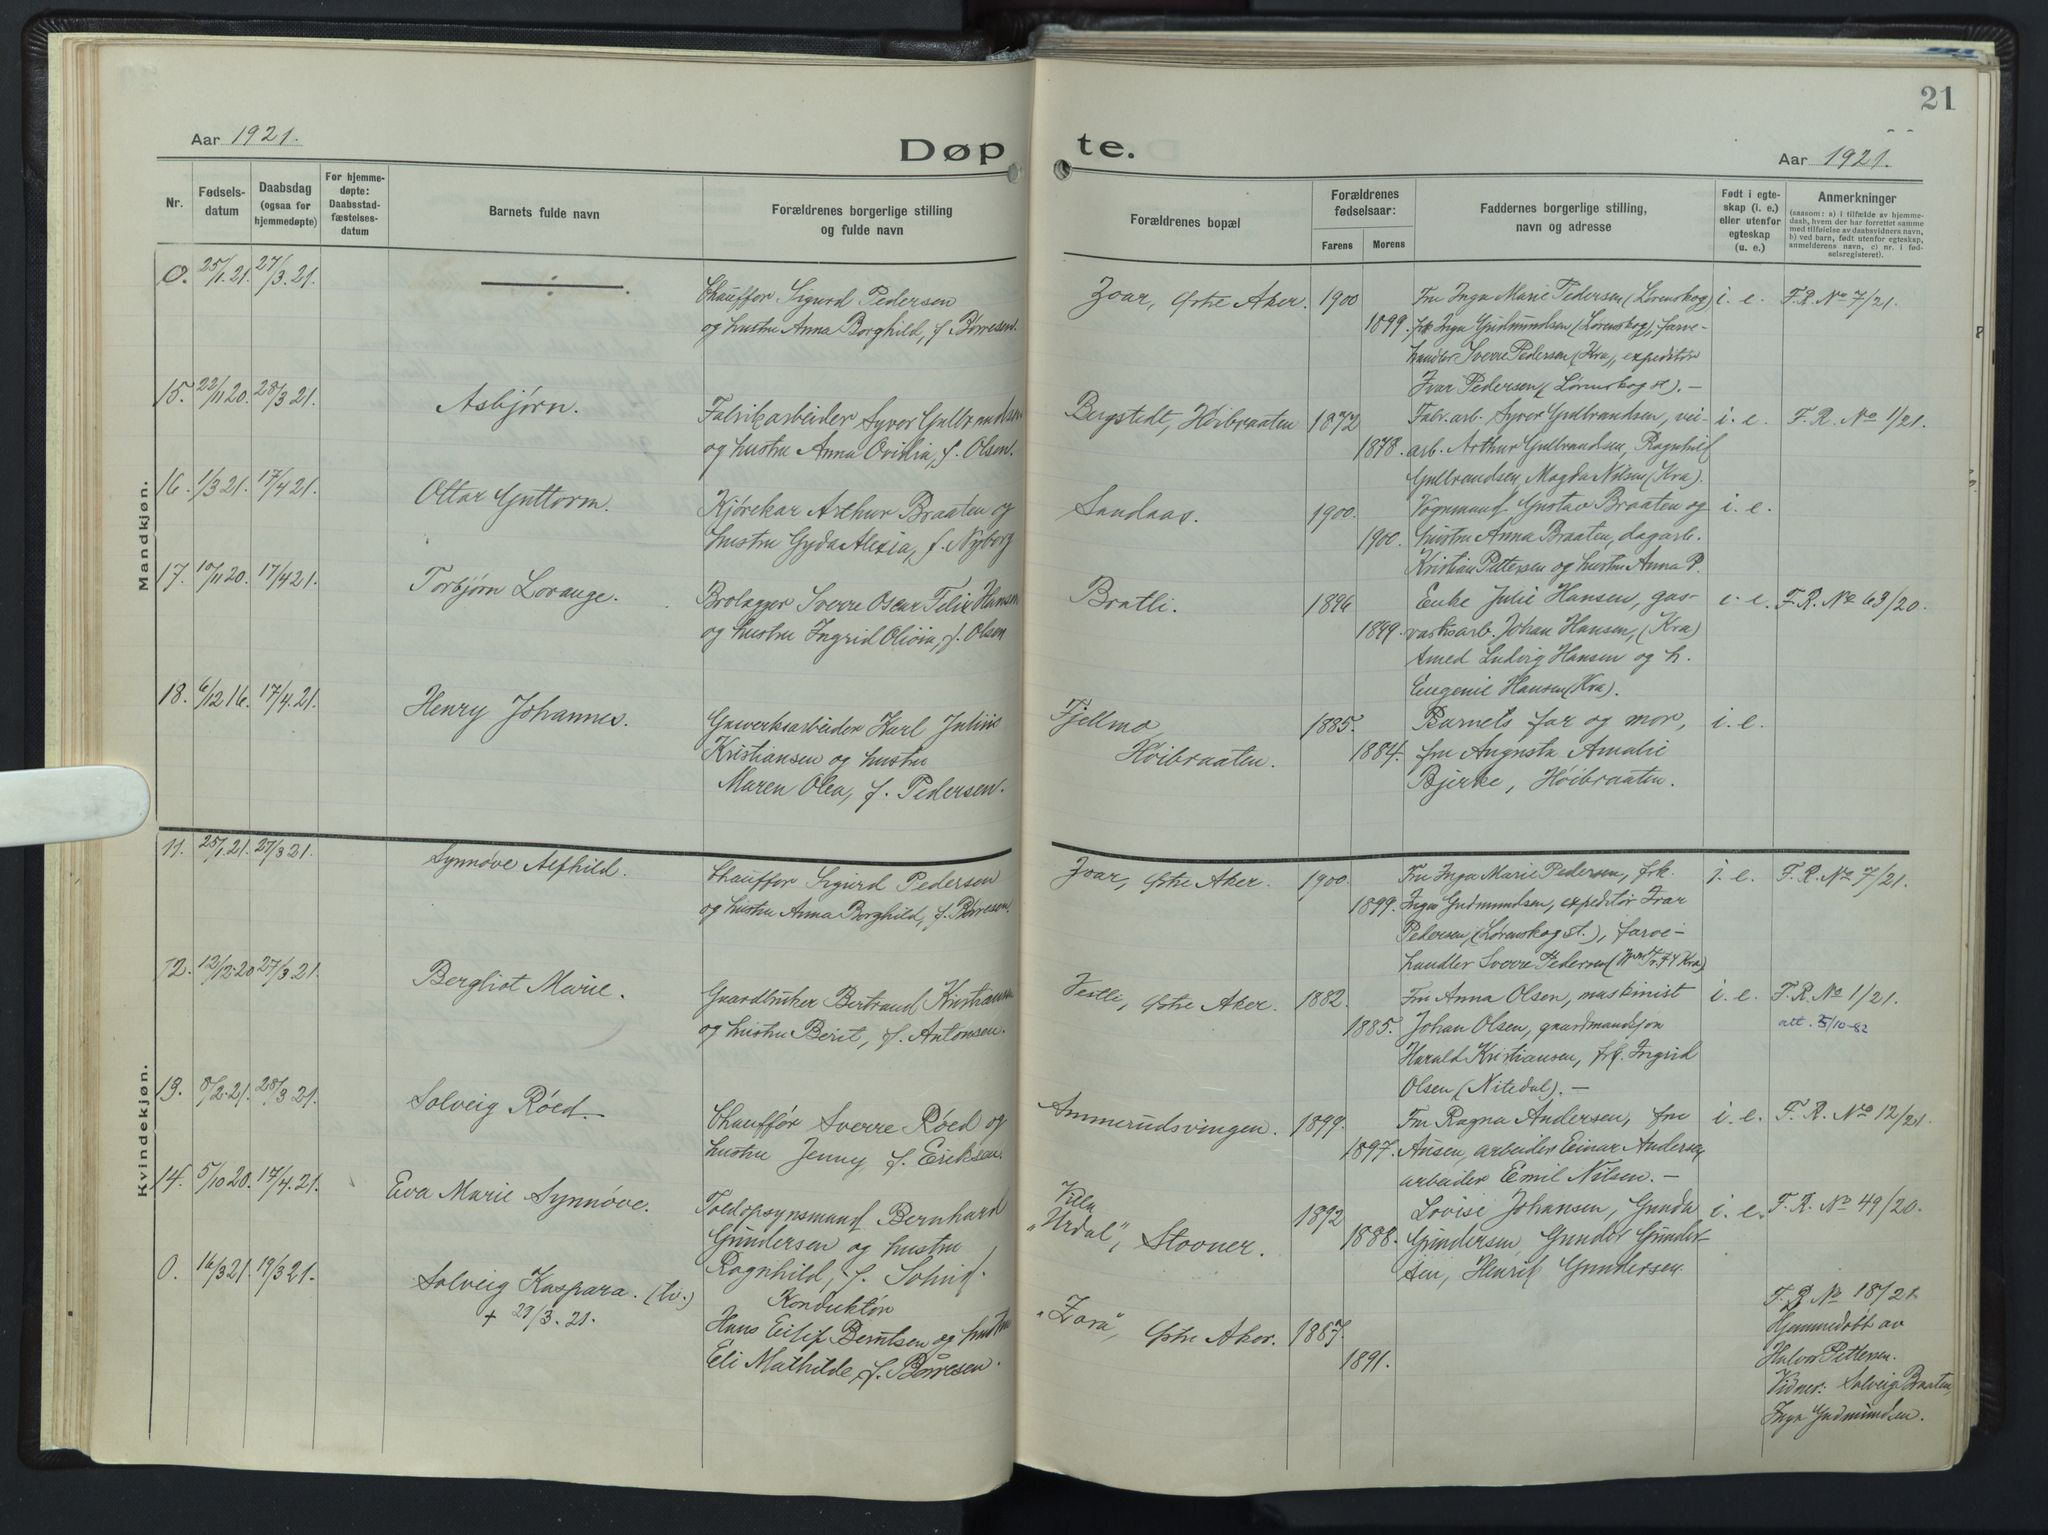 21
Aar 1921.
Døp te.
Aar 1921.
Nr.
Fødsels-
datum
Daabsdag
(ogsaa for
hjemmedøpte)
For hjemme-
døpte:
Daabsstad-
fæstelses-
datum
Barnets fulde navn
Forældrenes borgerlige stilling
og fulde navn
Forældrenes bopæl
Forældrenes
fødselsaar:
Farens
Morens
Faddernes borgerlige stilling,
navn og adresse
Født i egte-
skap (i. e.)
eller utenfor
egteskap
(u. e.)
Anmerkninger
(saasom: a) i tilfælde av hjemme-
daab, hvem der har forrettet samme
med tilføielse av daabsvidners navn,
b) ved barn, født utenfor egteskap,
anmelderens navn, c) nr. i fød-
selsregisteret).
Mandkjøn.
0. 25/1.21. 27/3.21. ÷
Chauffør Sigurd Pedersen
og hustru Anna Borghild, f. Børresen.
Zoar, Østre Aker. 1900
1899.
Fru Inga Marie Pedersen (Lørenskog),
frk Inga Gudmundsen (Lørenskog), farve-
handler Sverre Pedersen (Kra, expeditør
Ivar Pedersen (Lørenskog st). –
i. e. F.R. No 7/21.
15. 22/11 20. 28/3 21. Asbjørn.
Fabrikarbeider Syver Gulbrandsen
og hustru Anna Ovidia, f. Olsen.
Bergstedt, Høibraaten 1872
1878.
Fabr.arb. Syver Gulbrandsen, vei-
arb. Arthur Gulbrandsen, Ragnhild
Gulbrandsen, Magda Nilsen (Kra).
i. e. F. R. No 1/21.
16. 1/3 21. 17/4 21. Ottar Guttorm.
Kjørekar Arthur Braaten og
hustru Gyda Alexia, f. Nyborg
Sandaas. 1900.
1900.
Vognmand Gustav Braaten og
hustru Anna Braaten, dagarb.
Kristian Pettersen og hustru Anna P.
i. e.
17. 10/11 20. 17/4 21. Torbjørn Lorange.
Brolægger Sverre Oscar Felix Hansen
og hustru Ingrid Olivia, f. Olsen
Bratli. 1896
1899.
Enke Julie Hansen, gas-
verksarb. Johan Hansen, (Kra)
Amed Ludvig Hansen og h.
Eugenie Hansen (Kra).
i. e. F.R. No 63/20.
18. 6/12 16. 17/4.21. Henry Johannes.
Gasverksarbeider Karl Julius
Kristiansen og hustru
Maren Olea, f. Pedersen.
Fjellmo,
Høibraaten.
1885.
1884.
Barnets far og mor,
fru Augusta Amalie
Bjerke, Høibraaten.
i. e.
Kvindekjøn.
11. 25/1.21. 27/3 21. Synnøve Alfhild.
Chauffør Sigurd Pedersen
og hustru Anna Borghild, f. Børresen.
Zoar, Østre Aker. 1900.
1899.
Fru Inga Marie Pedersen, frk.
Inga Gudmundsen, expeditør Ivar
Pedersen, (Lørenskog st.), farve-
handler Sverre Pedersen
i. e. F.R. No 7/21.
12. 12/12.20 27/3.21. Bergliot Marie.
Gaardbruker Bertrand Kristiansen
og hustru Berit, f. Antonsen.
Vestli, Østre Aker. 1882.
1885.
Fru Anna Olsen, maskinist
Johan Olsen, gaardmandsøn
Harald Kristiansen, frk. Ingrid
Olsen (Nitedal). –
i. e. F. R. No 1/21.
att. 5/10-82
13. 8/2.21. 28/3 21. Solveig Røed.
Chauffør Sverre Røed og
hustru Jenny f. Eriksen.
Ammerudsvingen. 1899.
1897.
Fru Ragna Andersen, fru
Ausen, arbeider Einar Andersen,
arbeider Emil Nilsen. –
i. e. F. R. No 12/21.
14. 5/10 20. 17/4.21. Eva Marie Synnøve.
Toldopsynsmand Bernhard
Gundersen og hustru
Ragnhild, f. Solfiq.
Villa
„Urdal", Stovner.
1892
1888.
Lovise Johansen, Gunda
Gundersen, Gunder Gunder-
sen, Henrik Gundersen.
i. e. F. R. No 49/20.
0. 16/3 21. 19/3 21. Solveig Kaspara. (tv.)
+ 29/3. 21.
Konduktør
Hans Eilif Berntsen og hustru
Eli Mathilde, f. Børresen.
„Zora", Østre Aker. 1887.
1891.
F. R. No 18/21.
Hjemmedøbt av
Halvor Pettersen.
Vidner: Solveig Braaten,
Inga Gudmundsen.